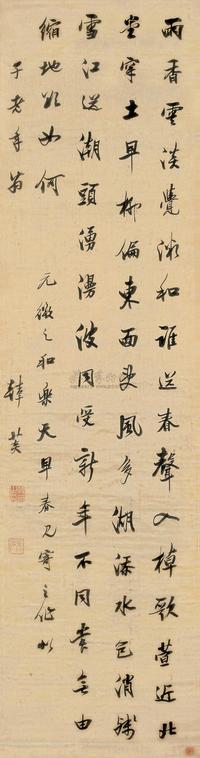 雨香雲淡覺微和誰送春聲入棹歌萱近北
堂穿土早柳偏東面受風多湖添水色消殘
雪江送潮頭湧漫波同受新年不同賞無由
縮地欲如何 元微之和樂天早春見寄之作似
于老年翁 韓菼